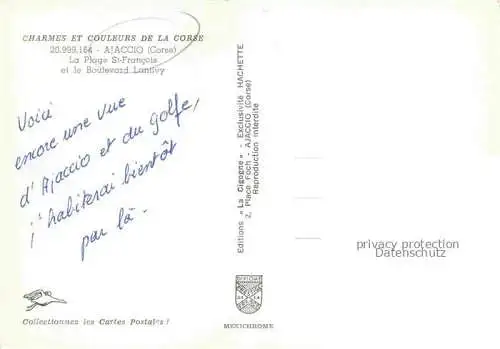 CHARMES ET COULEURS DE LA CORSE
20.999.164 - AJACCIO (Corse)
La Plage St-François
et le Boulevard Lantivy
Voici
encore une vue
d'Ajaccio et du golfe,
j'habiterai bientôt
par là.
Collectionnez les Cartes Postales !
Editions « La Cigogne » - Exclusivité HACHETTE
2, Place Foch - AJACCIO (Corse)
Reproduction interdite
MEXICHROME
privacy protection
Datenschutz